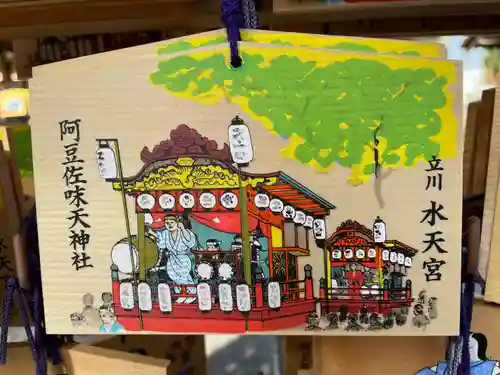 立川
水天宮
阿豆佐味天神社